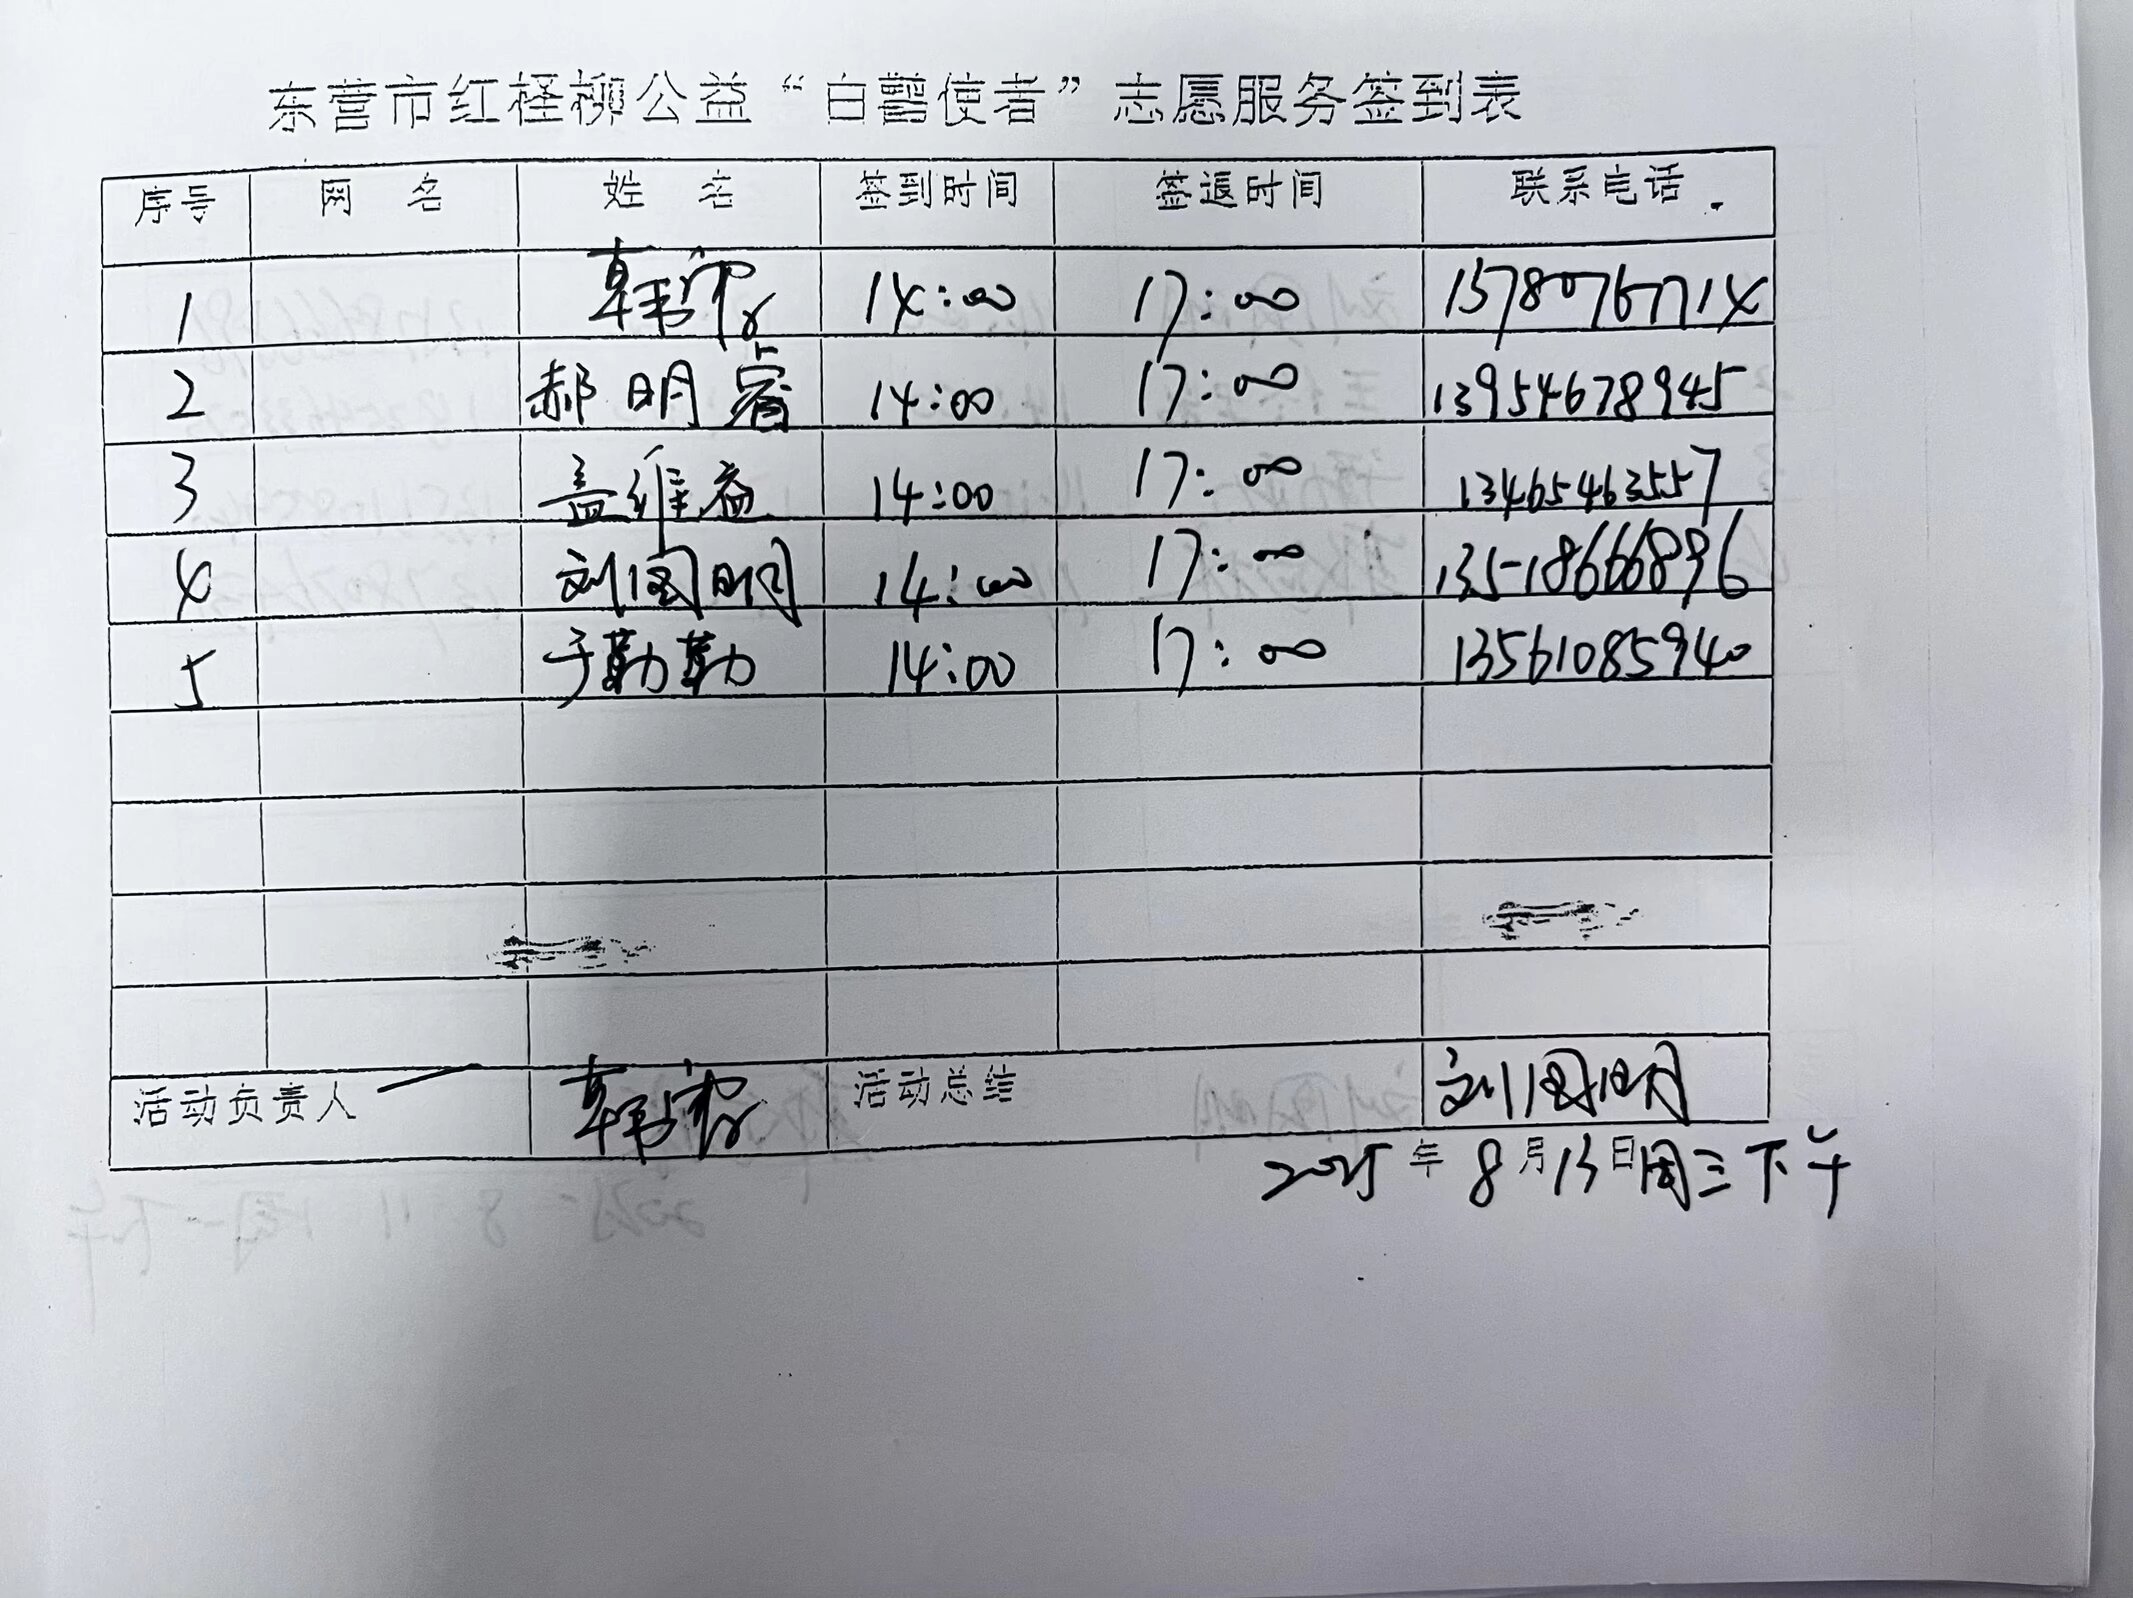 东营市红柽柳公益“白鹭使者”志愿服务签到表
序号 网 名 姓 名 签到时间 签退时间 联系电话
1 韩 14:00 17:00 13780767714
2 郝明睿 14:00 17:00 13954678945
3 盖维益 14:00 17:00 13465463557
4 刘国明 14:00 17:00 13518666896
5 于勤勤 14:00 17:00 13561085940
活动负责人 韩 活动总结 刘国明
2025年8月13日周三下午